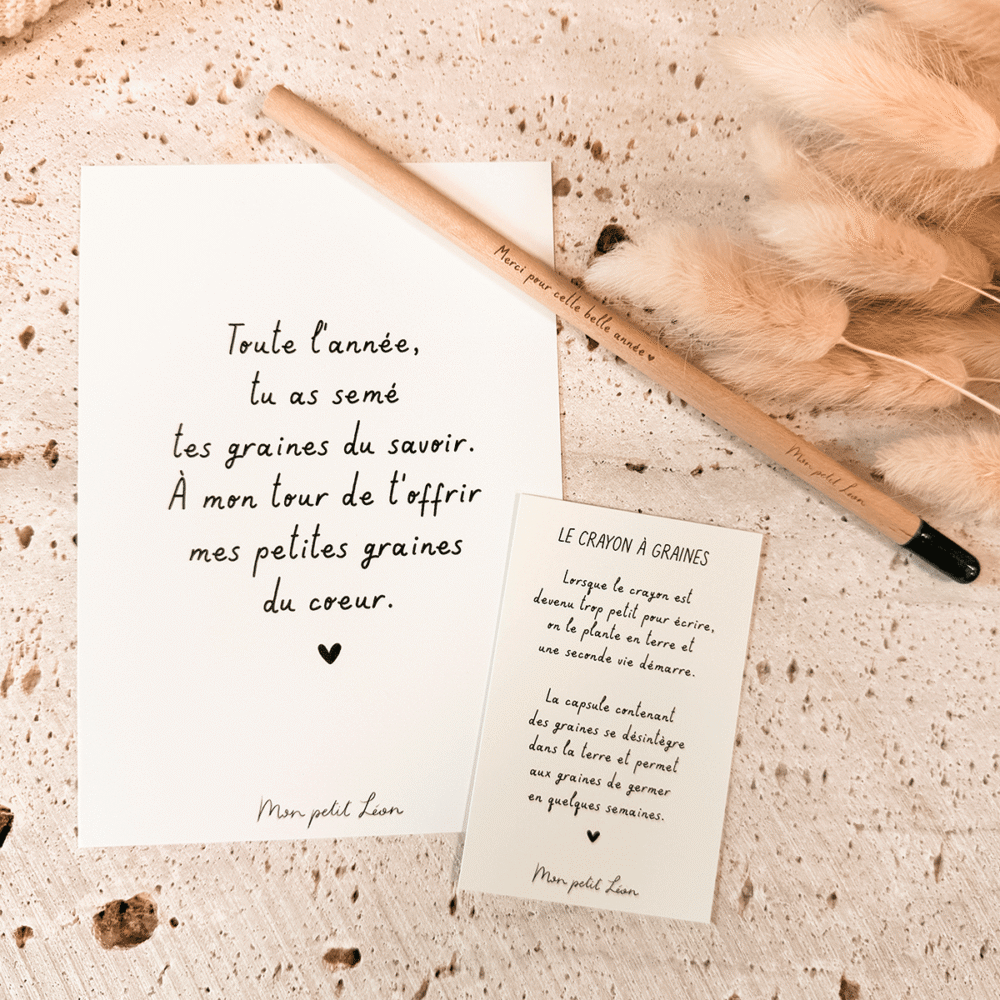 Toute l'année,
tu as semé
tes graines du savoir.
À mon tour de t'offrir
mes petites graines
du coeur.
Mon petit Léon
Merci pour cette belle année
Mon petit Léon
LE CRAYON À GRAINES
Lorsque le crayon est
devenu trop petit pour écrire,
on le plante en terre et
une seconde vie démarre.
La capsule contenant
des graines se désintègre
dans la terre et permet
aux graines de germer
en quelques semaines.
Mon petit Léon